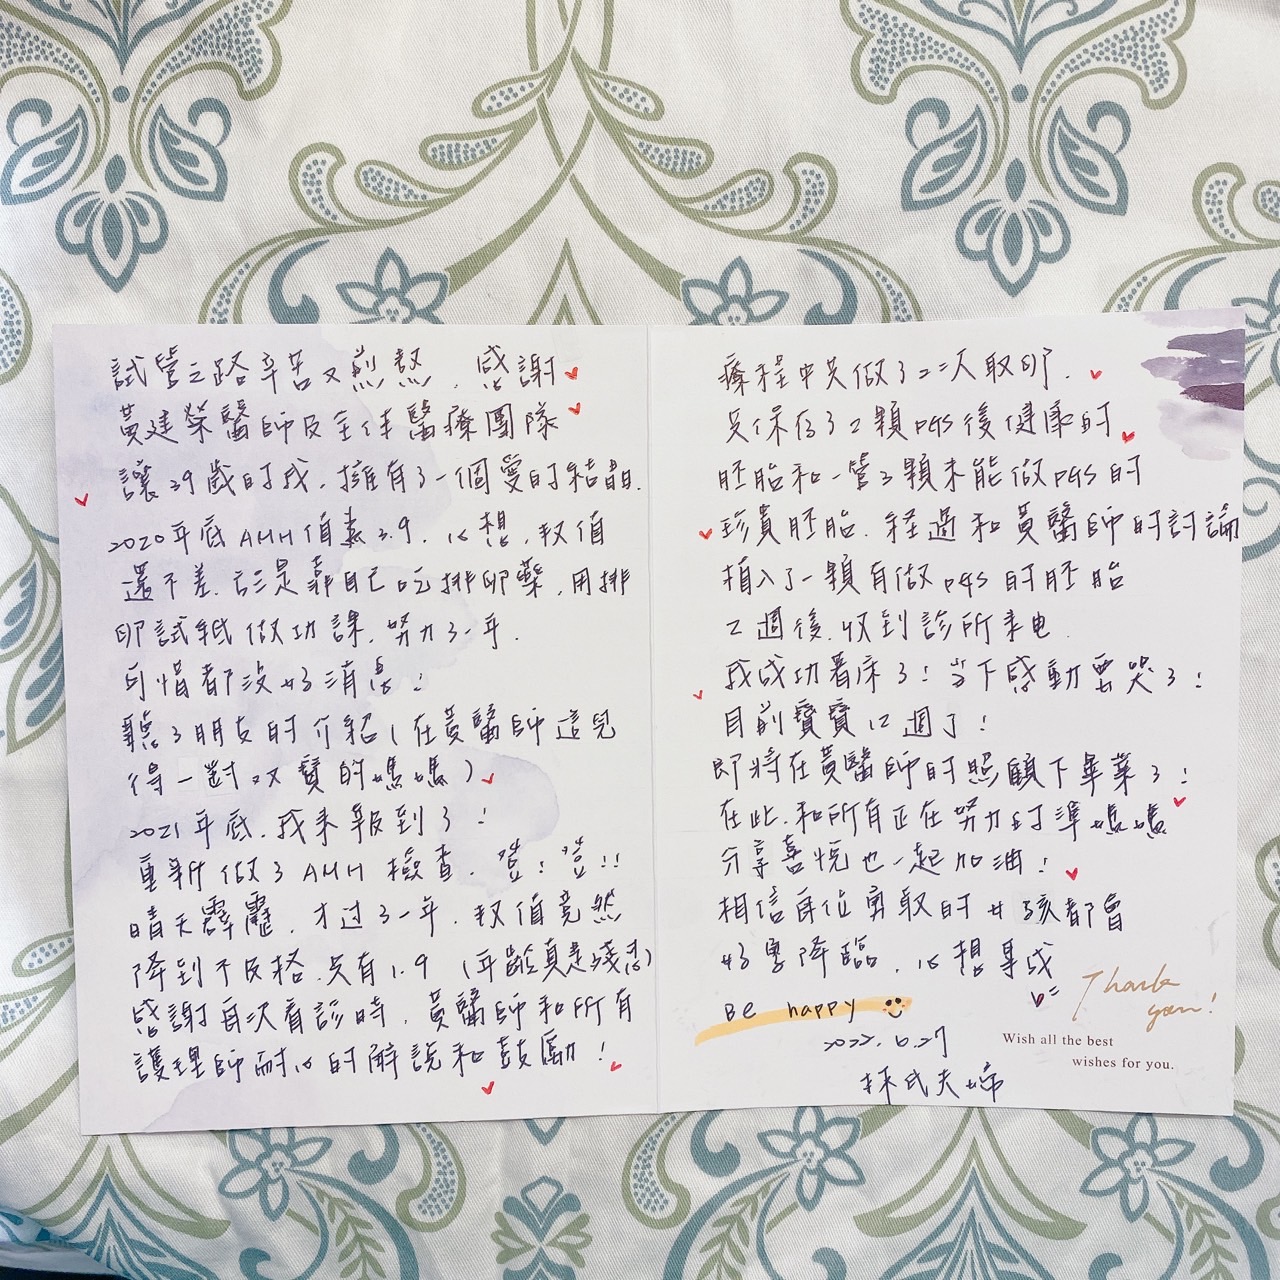 試管之路辛苦又煎熬，感謝
黃建榮醫師及全体醫療團隊
讓39歲的我，擁有了一個愛的結晶.
2020年底AMH值素3.9，心想，數值
還不差，於是靠自己吃排卵藥，用排
卵試紙做功課，努力了一年.
可惜都沒好消息！
聽了朋友的介紹（在黃醫師這兒
得一對双寶的媽媽）
2021年底，我來報到了！
重新做了AMH檢查，噔！噔!!
晴天霹靂，才过了一年，數值竟然
降到不及格，只有1.9（年齡真是殘忍）
感謝每次看診時，黃醫師和所有
護理師耐心的解說和鼓勵！
療程中共做了二次取卵，
只保存了2顆PGS後健康的
胚胎和一管3顆未能做PGS的
珍貴胚胎，経過和黃醫師的討論
植入了一顆有做PGS的胚胎
2週後，收到診所来电
我成功着床了！当下感動要哭了！
目前寶寶12週了！
即將在黃醫師的照顧下畢業了！
在此，和所有正在努力的準媽媽
分享喜悅也一起加油！
相信每位勇敢的女孩都會
好孕降臨，心想事成
Be happy
2022.6.27
林氏夫婦
Thank
you!
Wish all the best
wishes for you.